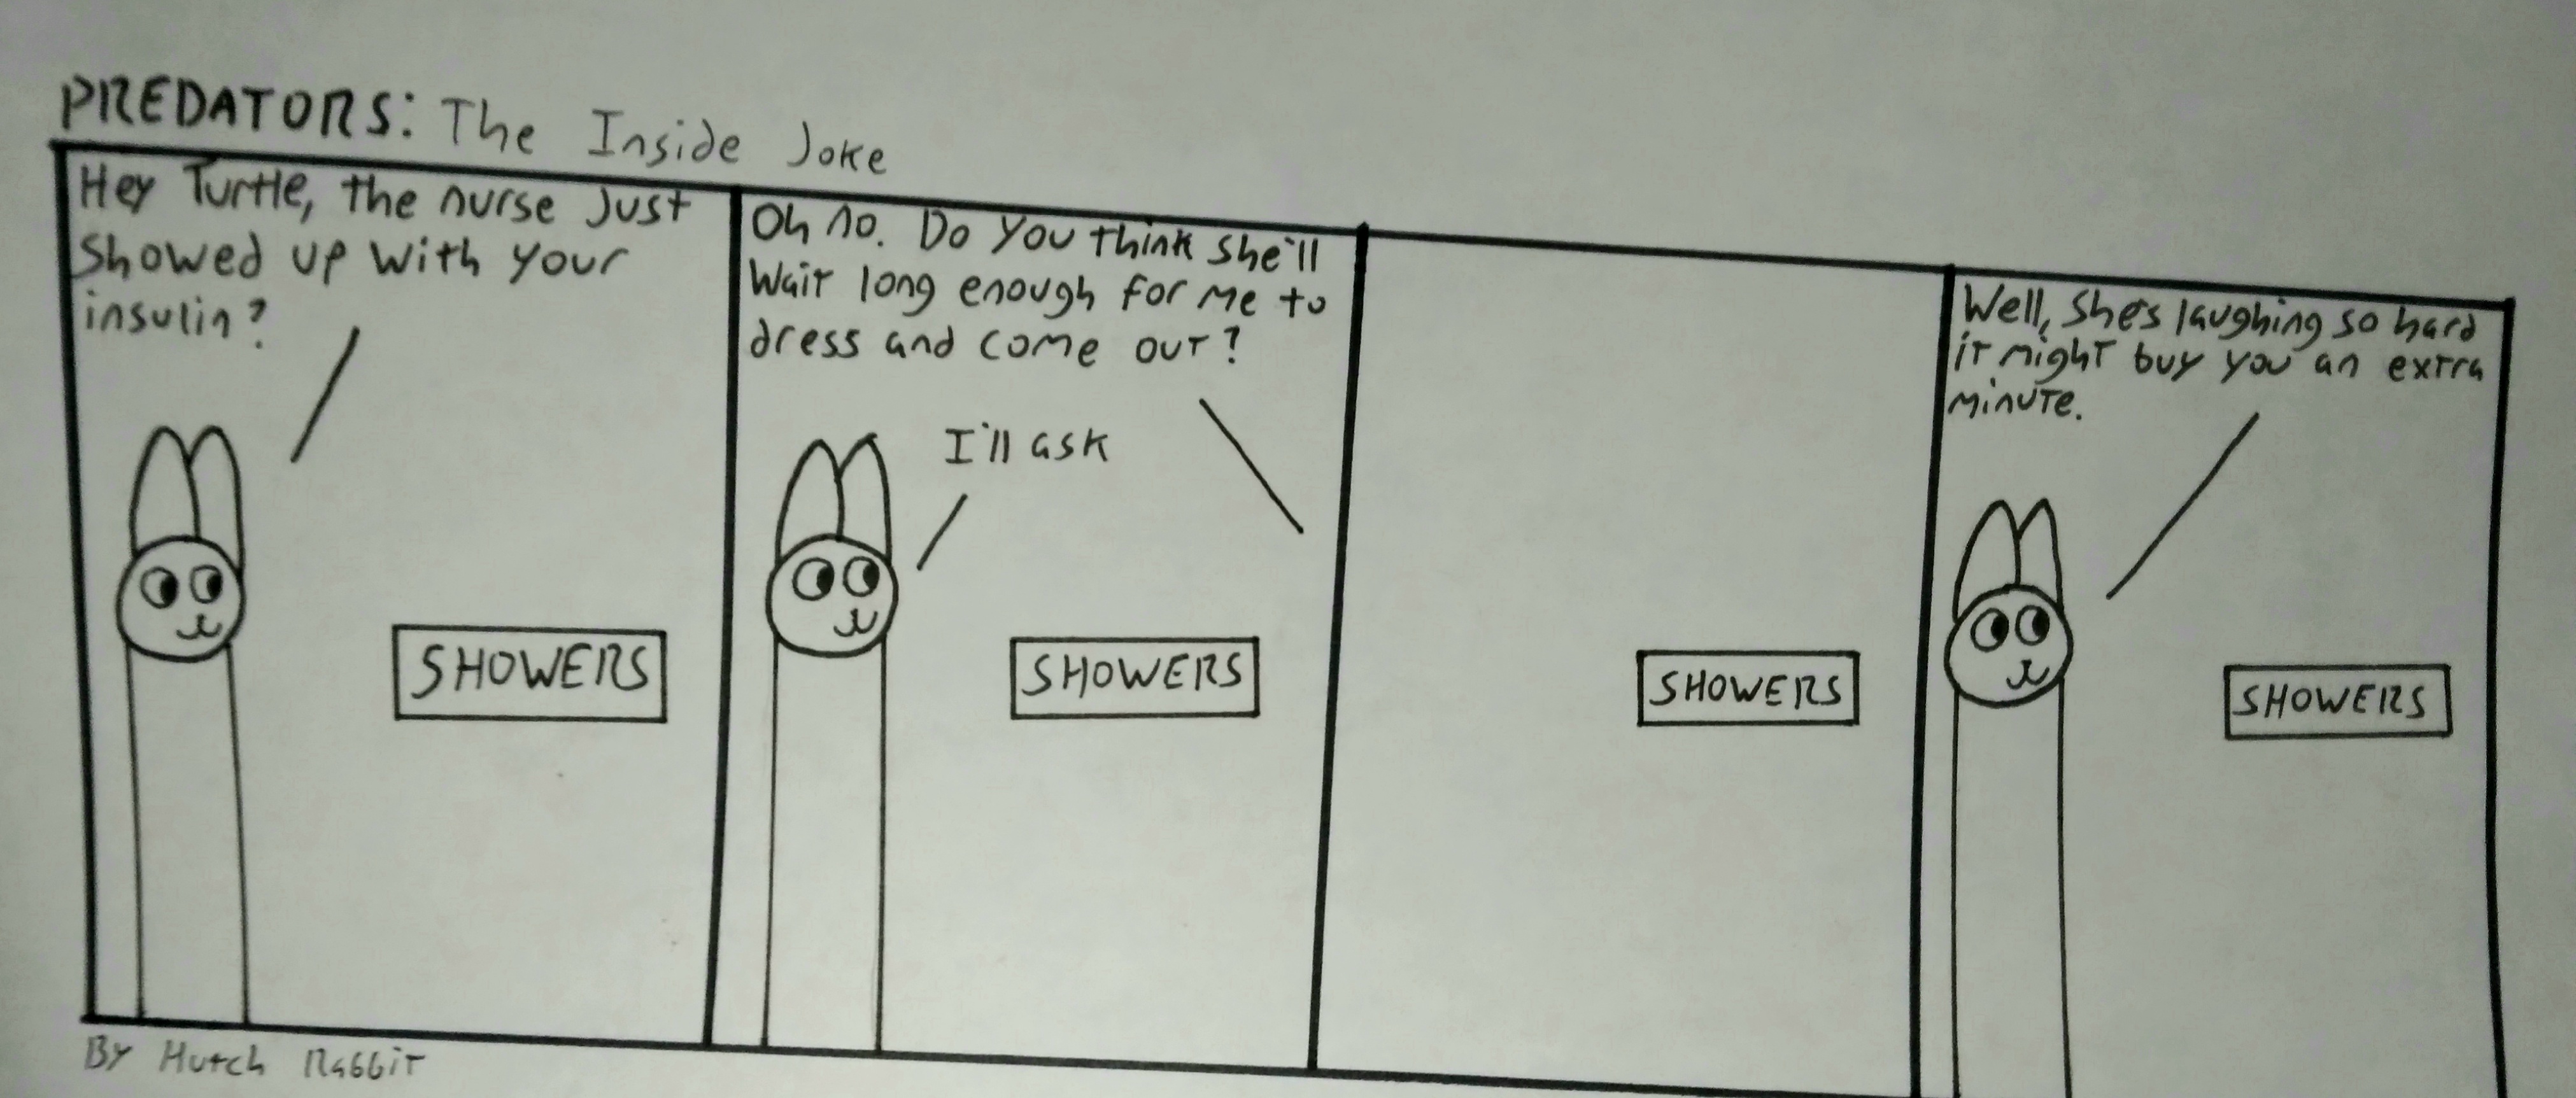 PREDATORS: The Inside Joke
Hey Turtle, the nurse just
showed up with your
insulin?
SHOWERS
Oh no. Do you think she'll
wait long enough for me to
dress and come out?
I'll ask
SHOWERS
SHOWERS
Well, she's laughing so hard
it might buy you an extra
minute.
SHOWERS
By Hutch Rabbit